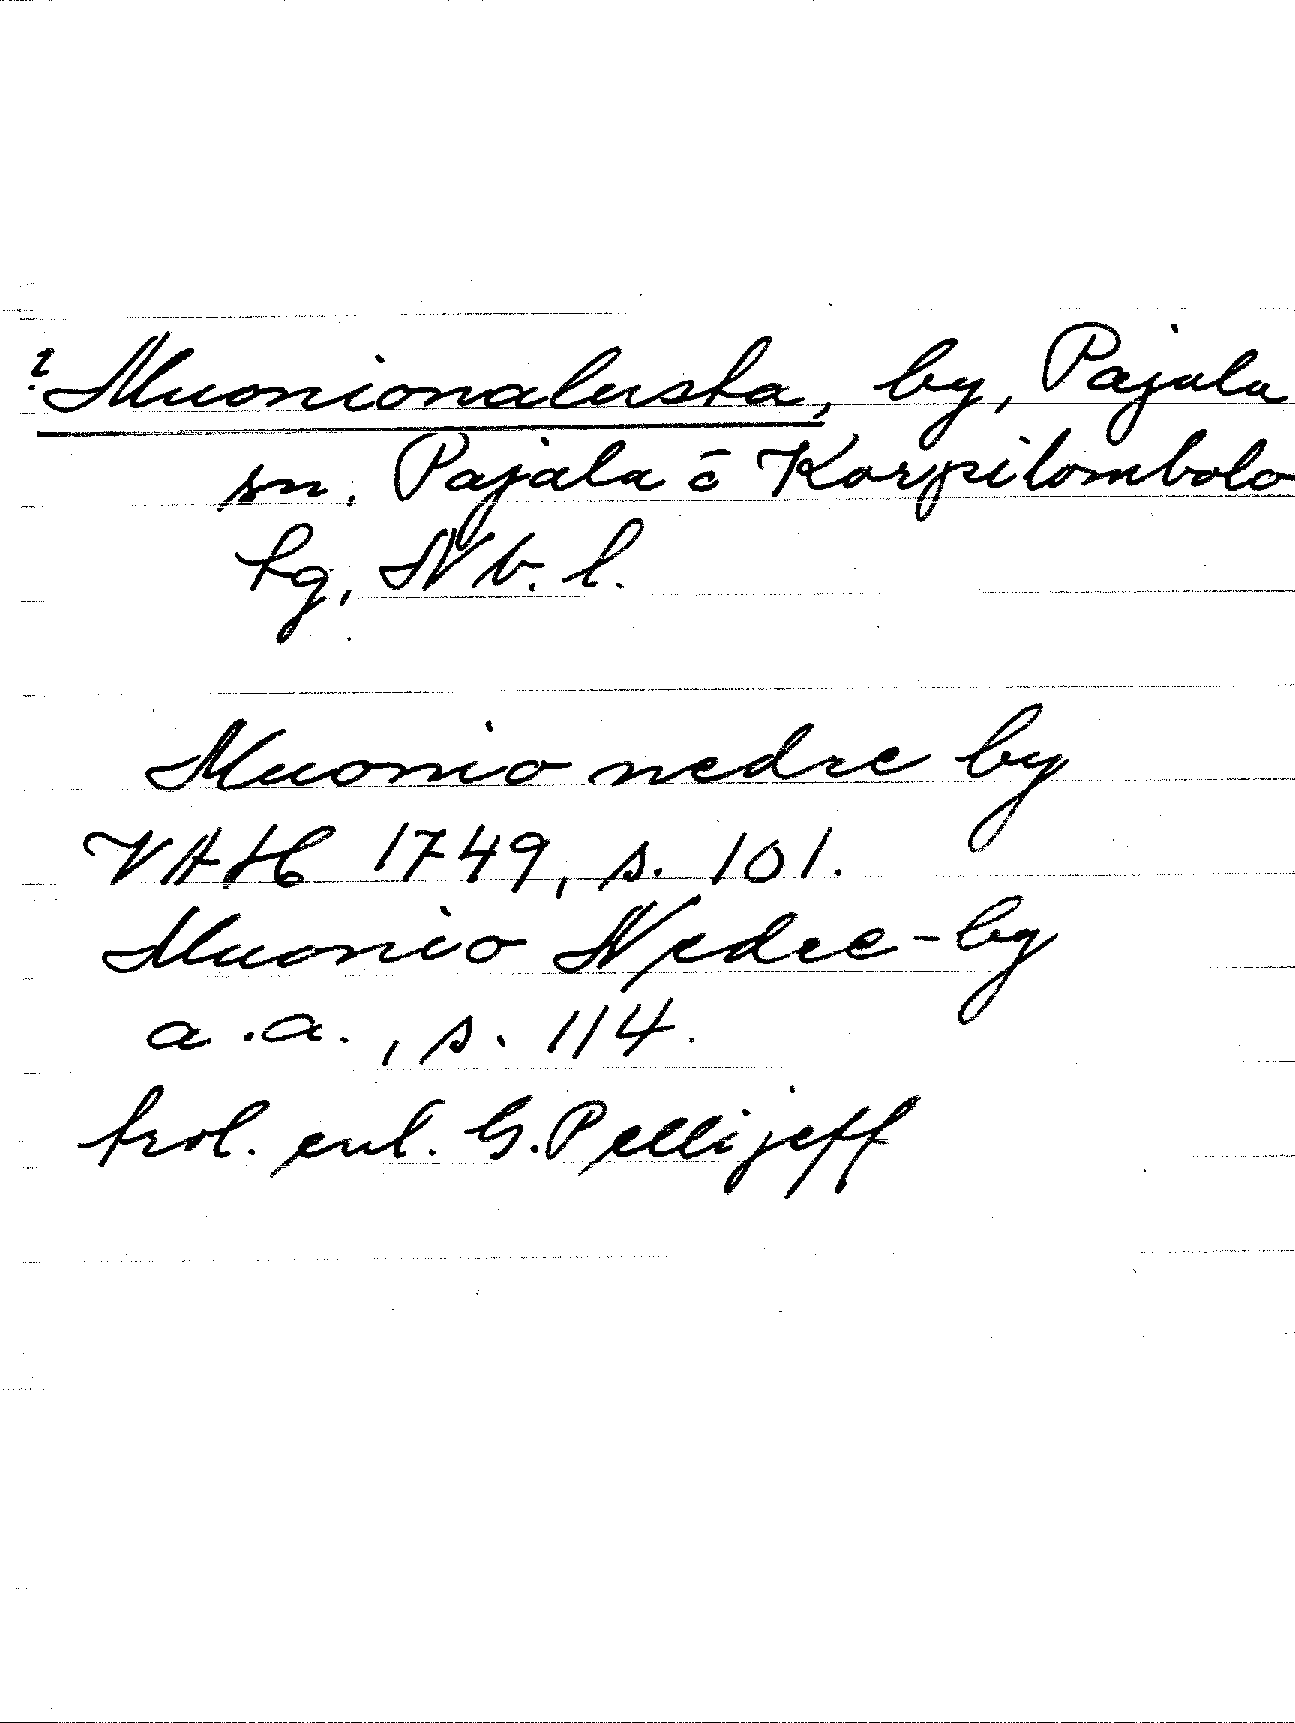 ? Muonionalusta, by, Pajala
sn, Pajala o Korpilombolo
tg, Nb. l.
Muonio nedre by
VAH 1749, s. 101.
Muonio Nedre-by
a.a., s. 114.
trol. enl. G. Pellijeff